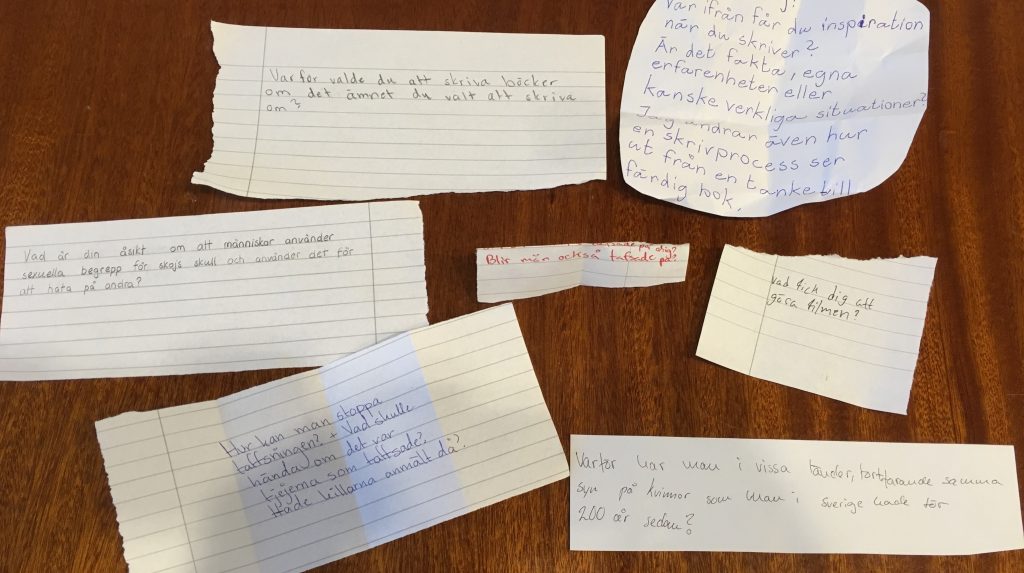 Varför valde du att skriva böcker
om det ämnet du valt att skriva
om?
Var ifrån får du inspiration
när du skriver?
Är det fakta, egna
erfarenheter eller
kanske verkliga situationer?
Jag undrar även hur
en skrivprocess ser
ut från en tanke till
färdig bok.
Vad är din åsikt om att människor använder
sexuella begrepp för skojs skull och använder det för
att hata på andra?
på dig?
Blir män också tafsade på?
Vad fick dig att
göra filmen?
Hur kan man stoppa
taffsningen? + Vad skulle
hända om det var
tjejerna som taffsade?
Hade killarna anmält då?
Varför har man i vissa länder, fortfarande samma
syn på kvinnor som man i sverige hade för
200 år sedan?